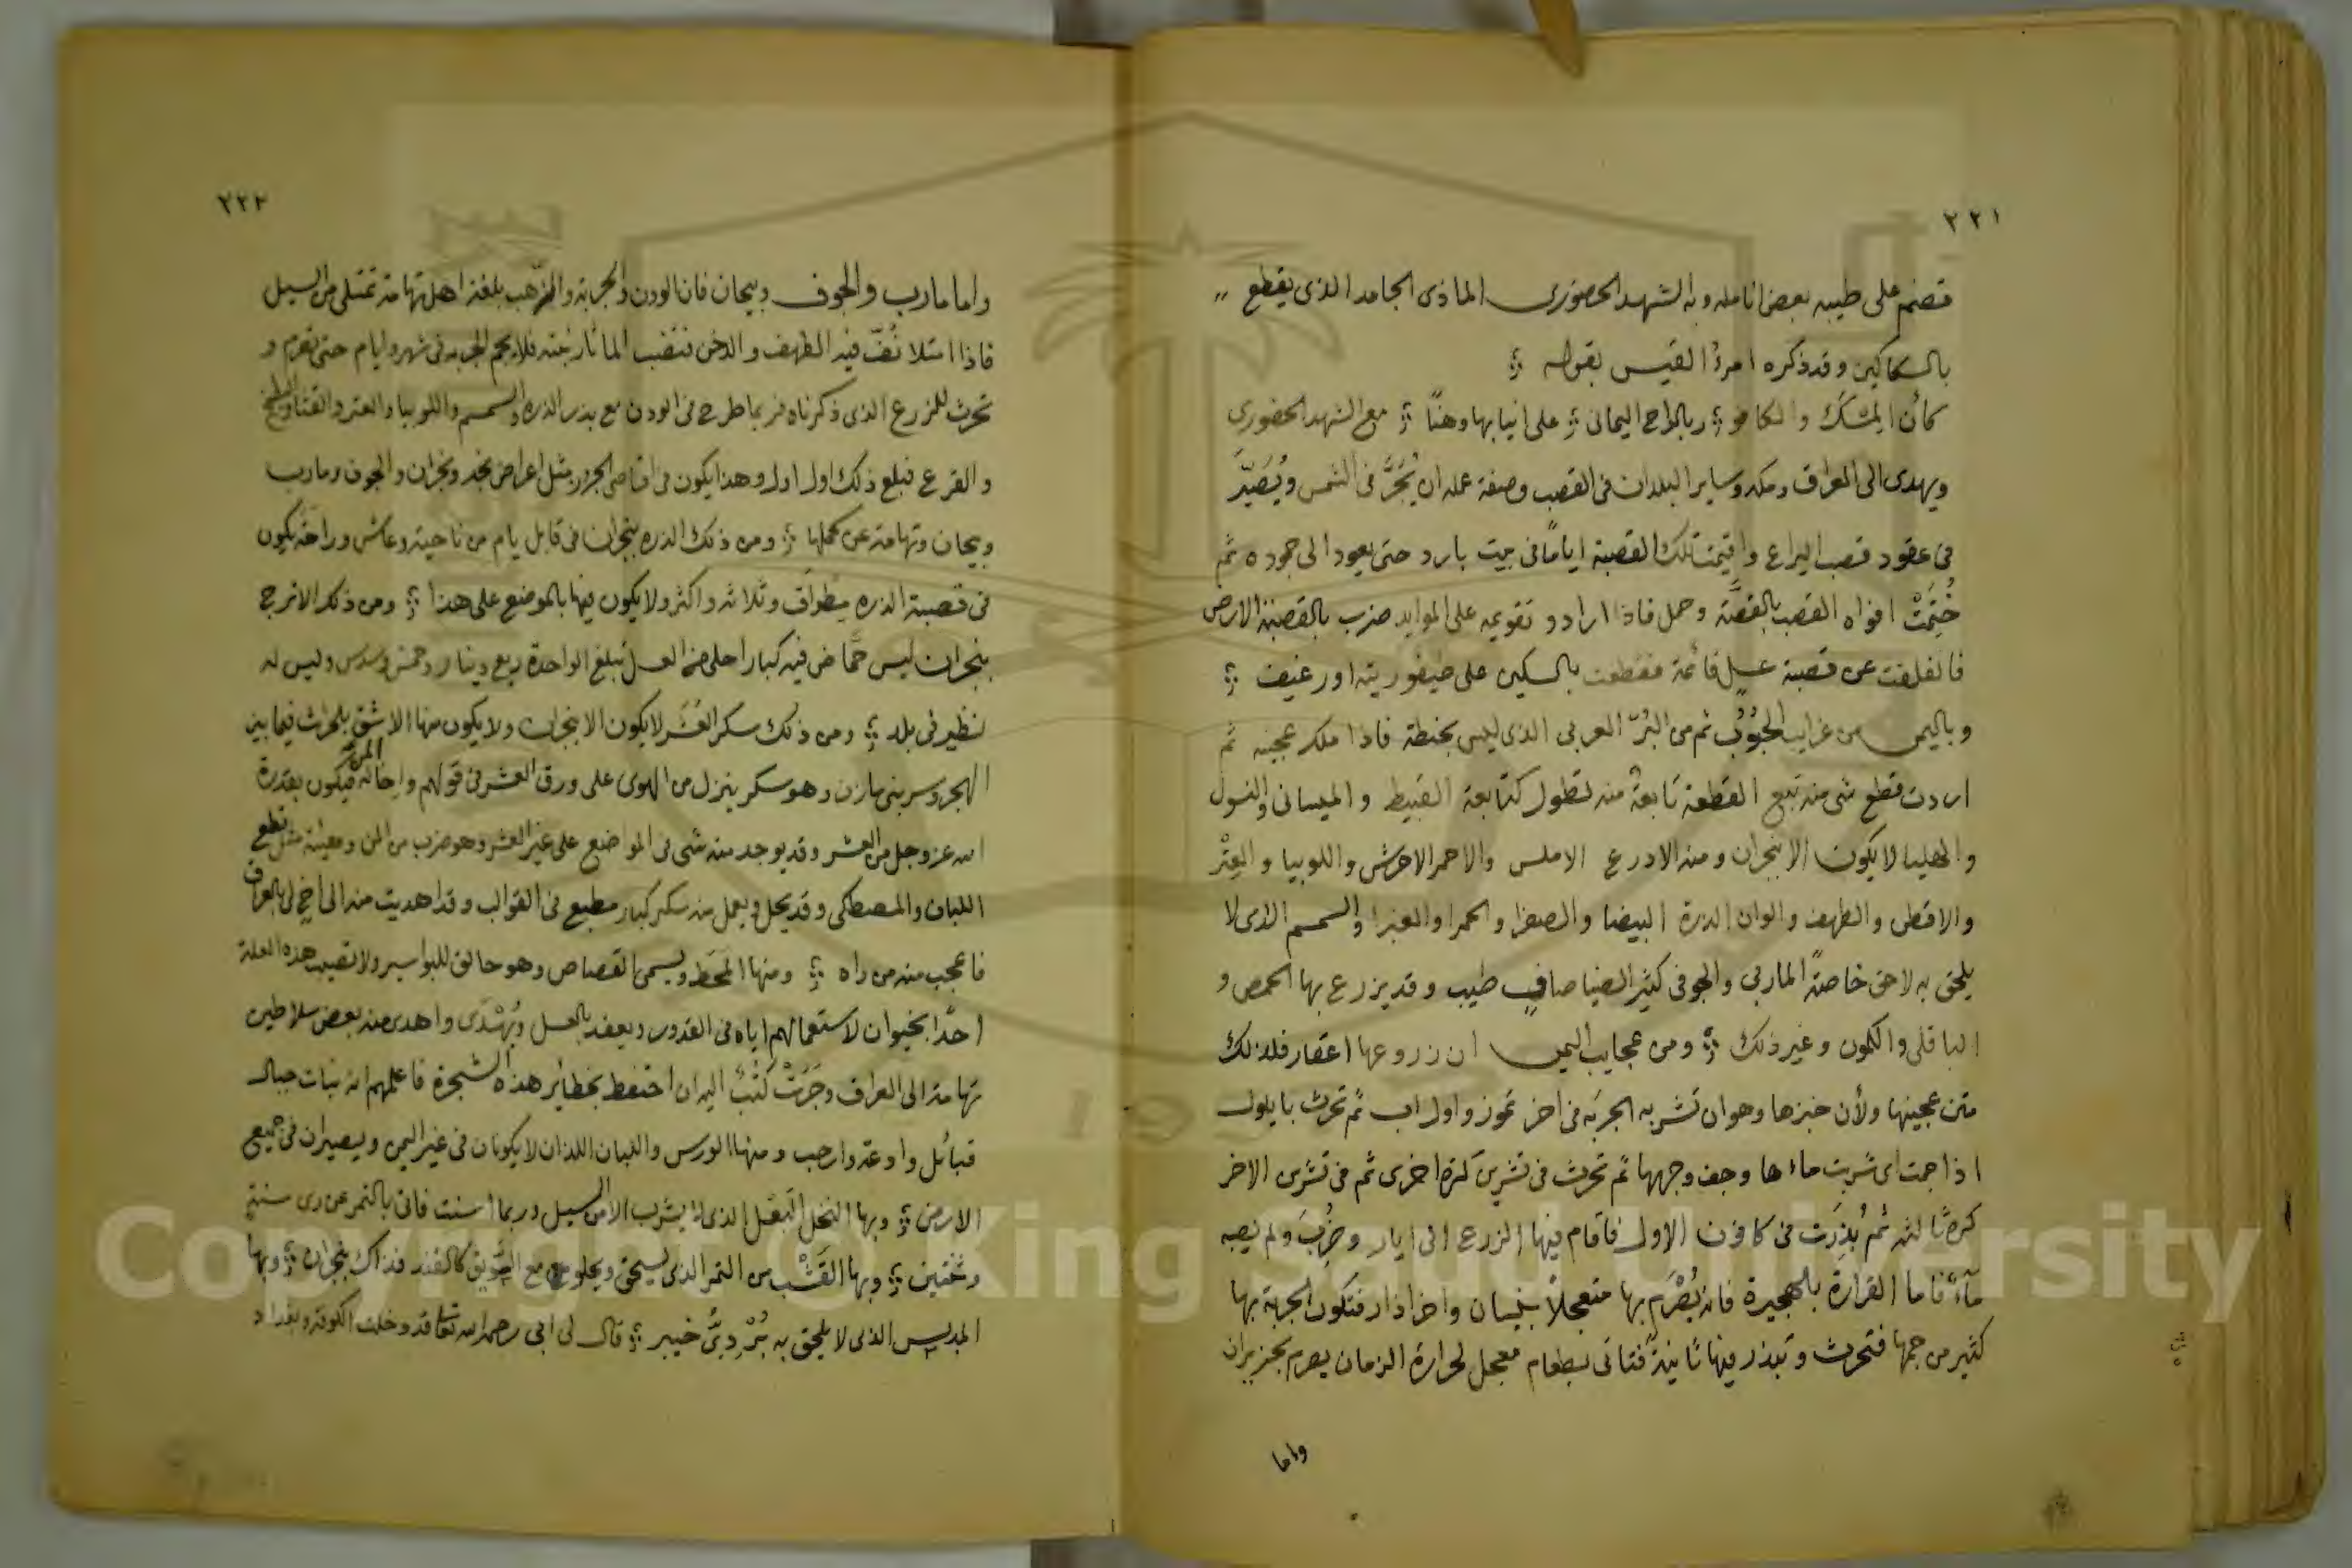 ٢٢١
قضم على طيبه بعض انامله وبه الشهد الحضورى الماذى الجامد الذى يقطع
بالسكاكين وقد ذكره امرؤ القيس بقوله
كأن المسك والكافور بالراح اليمانى على انيابها وهنًا مع الشهد الحضورى
ويهدى الى العراق ومكه وساير البلدان فى القصب وصفة عمله ان يُجَرَّ فى الشمس ويُصَيَّر
فى عقود قصب اليراع واقيمت تلك القصبة ايامًا فى بيت بارد حتى يعود الى جموده ثم
خُتِمَتْ افواه القصب بالقصَّة وحمل فاذا ارادو تقويمه على الموايد ضرب بالقصبة الارض
فانفلقت عن قصبة عسلٍ قائمة فقطعت بالسكين على طيفورية او رغيف
وباليمن من غرايب الحبُوُب ثم من البُرّ العربى الذى ليس بحنطة فاذا ملك عجينه ثم
اردت قطع شى منه تبع القطعة تابعةٌ منه تطول كتابعة القبيط والميسانى والنسول
والهلبا لا يكون الا بنجران ومنه الادرع الاملس والاحمر الاحرش واللوبيا والعِتْر
والاقطن والطهف والوان الذرة البيضا والصفرا والحمرا والغبرا والسمسم الذى لا
يلحق به لاحق خاصةً الماربى والجوفى كثير الضيا صافٍ طيب وقد يزرع بها الحمص و
الباقلى والكمون وغير ذلك ومن عجايب اليمن ان زروعها اعقار فلذلك
متن عجينها ولأن خبزها وهو ان تشربه الجربَه فى اخر تموز واول اب ثم تحرث بايلول
اذا جمت اى شربت ماءها وجف وجهها ثم تحرث فى تشرين كرة اخرى ثم فى تشرى الاخر
كرة ثالثه ثم بُذِرَت فى كانون الاول فاقام فيها الزرع الى ايار وضُرِبَ ولم يصبه
مآءٌ فاما القرارة بالهجيرة فانه يُصْرَم بها متعجلاً بنيسان واخر اذار فتكون الجربة بها
كثير من جمها فتحرث وتبذر فيها ثانيةً فتاتى بطعام معجل لحرارة الزمان يصرم بحزيران
واما
٢٢٢
واما مارب والجوف وبيحان فان الودن والجربة والذهب بلغة اهل تهامة تمتلى من السيل
فاذا امتلا ثُفّ فيه الطهف والدخن فنضب الما ثار نبته فلا يجم الجربه فى شهر وايام حتى تصرم و
تحرث للزرع الذى ذكرناه فربما طرح فى الودن مع بذر الذره والسمسم واللوبيا والعتر والقثا والبطيخ
والقرع فبلغ ذلك اول اول وهذا يكون فى اقاصى الجزر مثل اعراض نجد ونجران والجوف ومارب
وبيحان وتهامة عن كملها ومن ذلك الذره بنجران فى قابل يام من ناحية وعاش وراحة يكون
فى قصبة الذره مِطوان وثلاثه واكثر ولا يكون فيها بالموضع على هذا ومن ذلك الاترج
بنجران ليس حمَّاض فيه كبار احلى من العسل تبلغ الواحدة ربع دينار وخمس وسدس وليس له
نظير فى بلد ومن ذلك سكر العُشَر لا يكون الا بنجران ولا يكون منها الا بشق بلحرث فيما بين
الهجر وسر بنى مازن وهو سكر ينزل من الهوى على ورق العشر فى قولهم واخاله المن فيكون بقدرة
الله عز وجل من العشر وقد يوجد منه شى فى المواضع على غير العشر وهو ضرب من المن ومعينة مثل قطع
اللبان والمصطكى وقد يحل ويعمل منه سكر كبار مطبع فى القوالب وقد اهديت منه الى اخٍ لى بالعراق
فاعجب منه من راه ومنها المخط ويسمى القصاص وهو حالق للبواسير ولا تصيب هذه العلة
احدًا بخيوان لاستعمالهم اياه فى القدور ويعقد بالعسل ويُهْدَى واهدى منه بعض سلاطين
تهامة الى العراق وجَرَتْ كُتُبٌ اليه ان احتفظ بحظائر هذه الشجرة فاعلمهم انه نبات جبال
قبائل وادعة وارحب ومنها الورس واللبان اللذان لا يكونان فى غير اليمن ويصيران فى جميع
الارض وبها النخل البَعْل الذى لا يشرب الا من السيل وربما اسنت فاتى بالتمر عن رى سنتٍ
وسنتين وبها القَسْب من التمر الذى يسحق ويحلو مع السَّويق كالقند فذاك بنجران وبها
المدبس الذى لا يلحق به بُرْدِيُّ خيبر قال لى ابى رحمه الله تعا قد دخلت الكوفة وبغداد